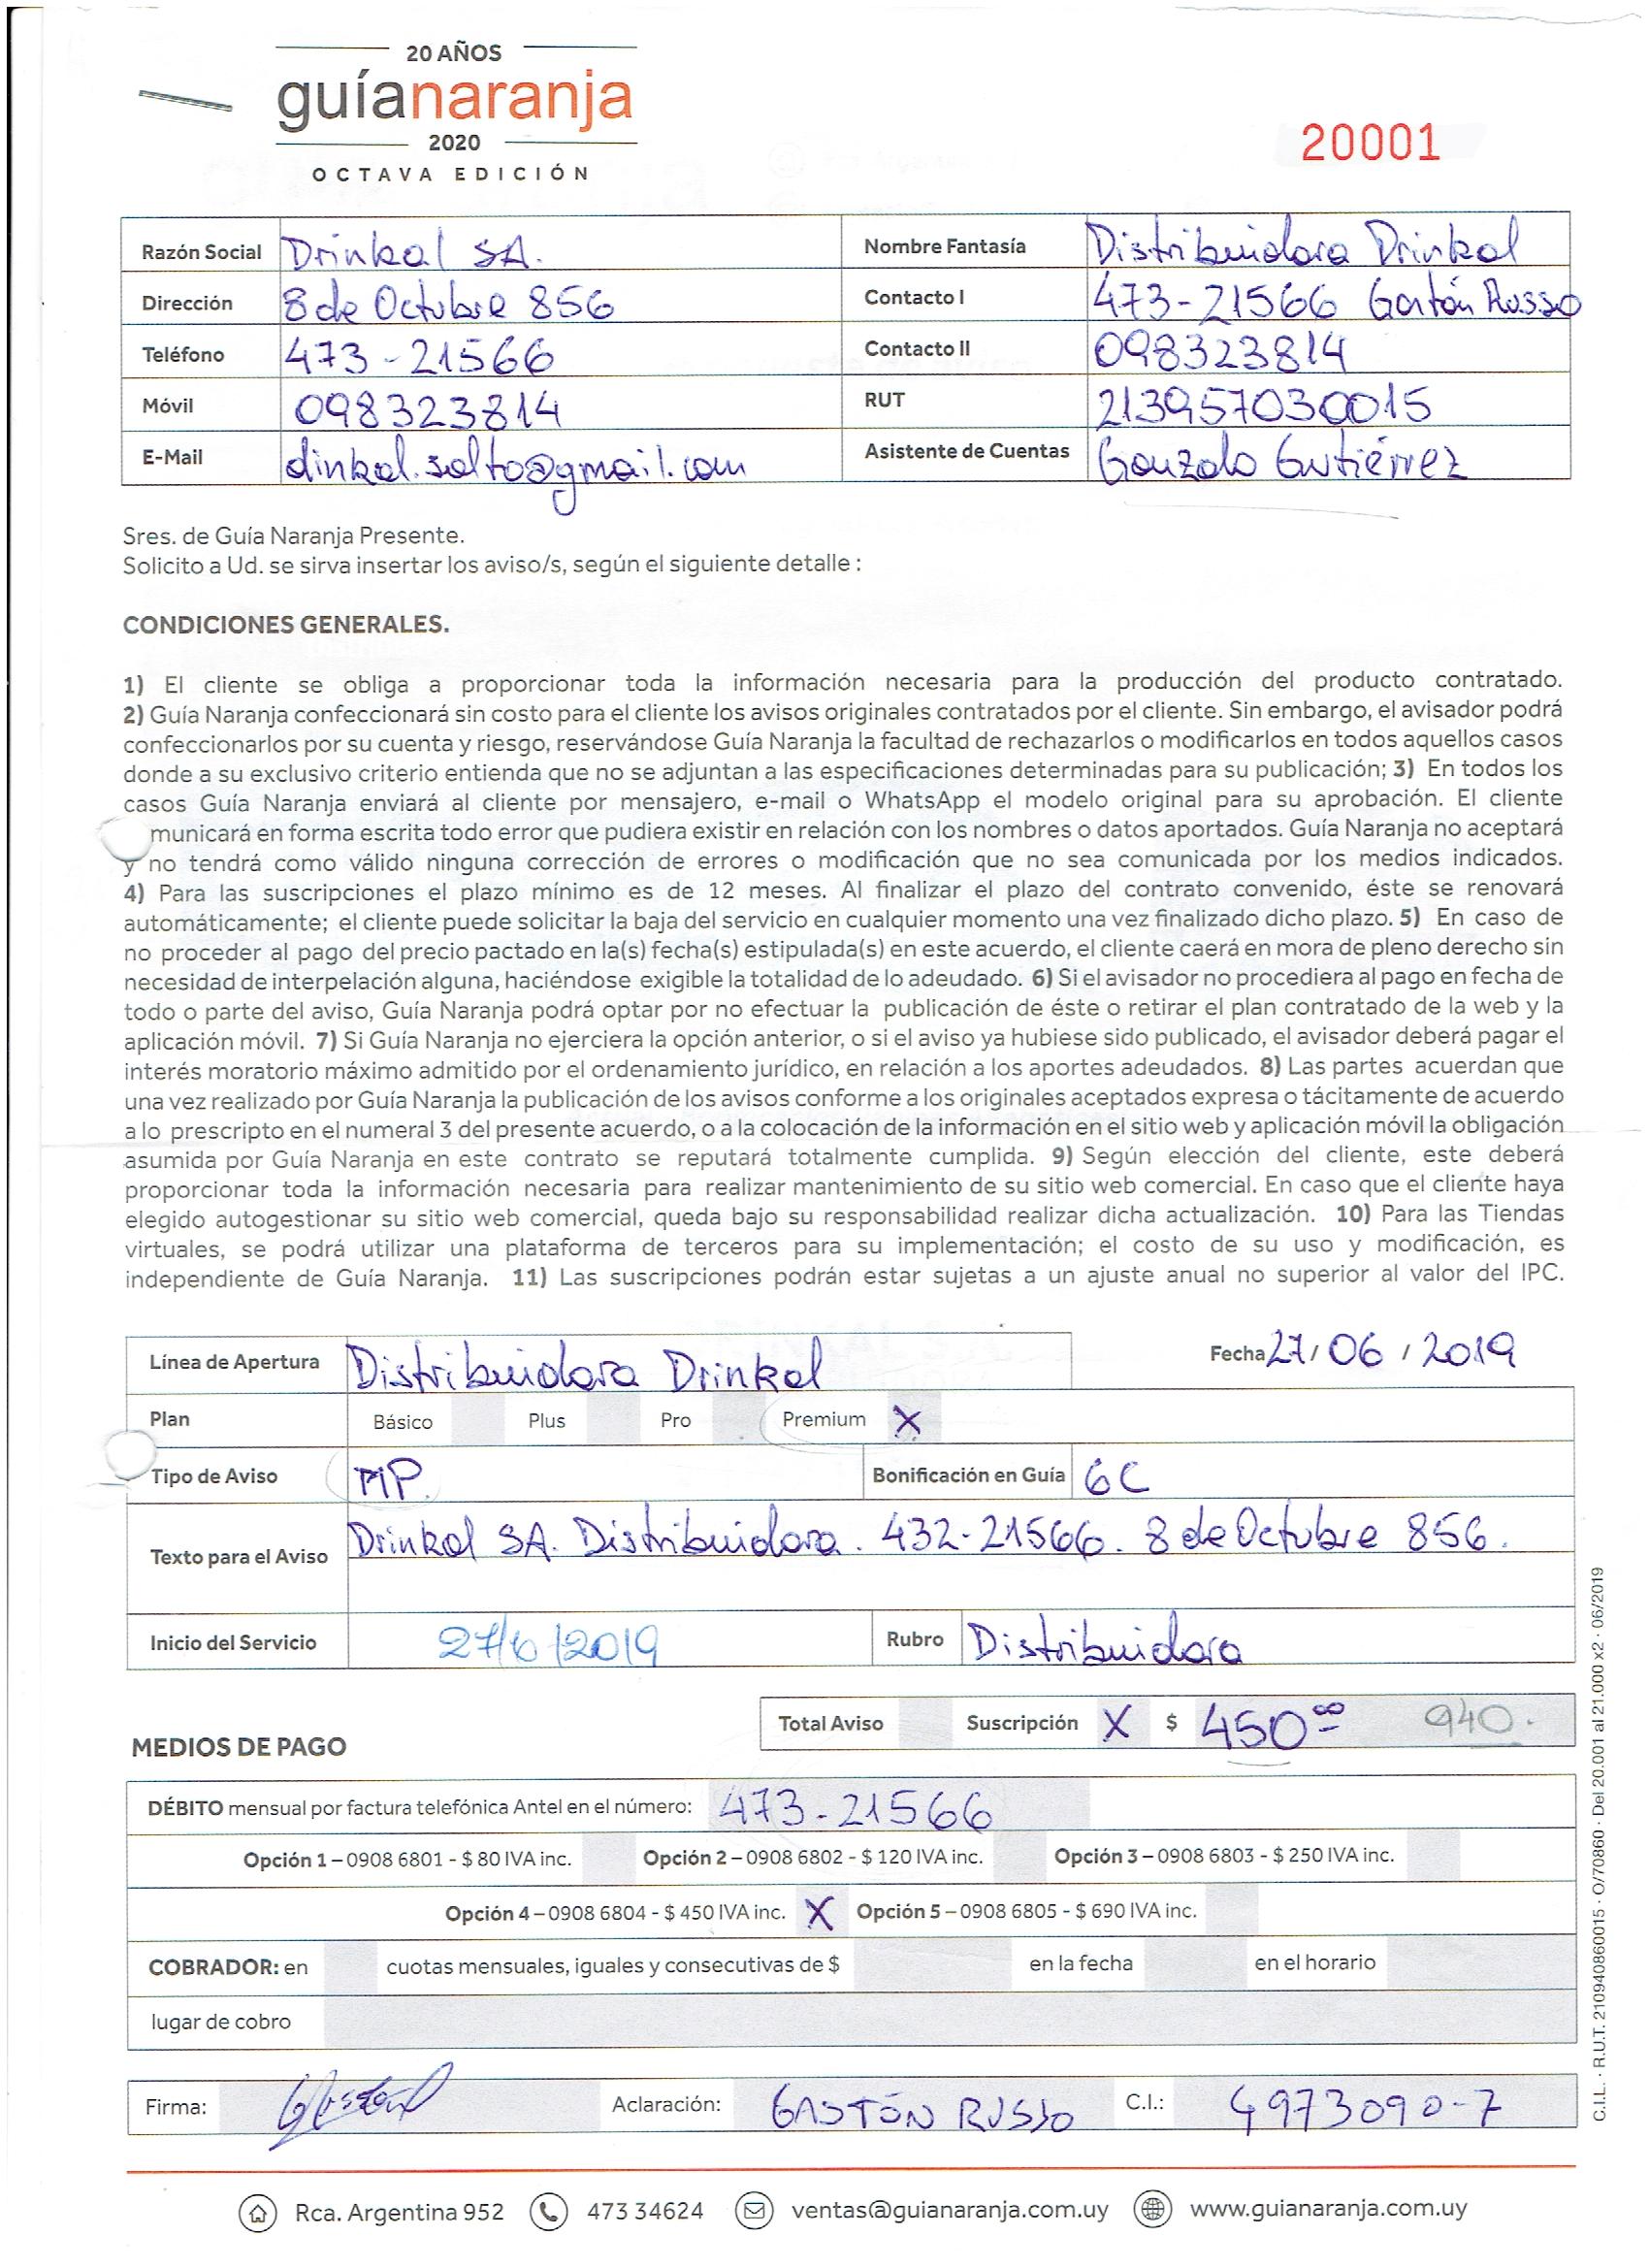 20 AÑOS
guíanaranja
2020
OCTAVA EDICIÓN
20001
Razón Social Drinkal SA. Nombre Fantasía Distribuidora Drinkal
Dirección 8 de Octubre 856 Contacto I 473-21566 Gastón Russo
Teléfono 473-21566 Contacto II 098323814
Móvil 098323814 RUT 213957030015
E-Mail dinkal.salto@gmail.com Asistente de Cuentas Gonzalo Gutiérrez
Sres. de Guía Naranja Presente.
Solicito a Ud. se sirva insertar los aviso/s, según el siguiente detalle :
CONDICIONES GENERALES.
1) El cliente se obliga a proporcionar toda la información necesaria para la producción del producto contratado.
2) Guía Naranja confeccionará sin costo para el cliente los avisos originales contratados por el cliente. Sin embargo, el avisador podrá
confeccionarlos por su cuenta y riesgo, reservándose Guía Naranja la facultad de rechazarlos o modificarlos en todos aquellos casos
donde a su exclusivo criterio entienda que no se adjuntan a las especificaciones determinadas para su publicación; 3) En todos los
casos Guía Naranja enviará al cliente por mensajero, e-mail o WhatsApp el modelo original para su aprobación. El cliente
municará en forma escrita todo error que pudiera existir en relación con los nombres o datos aportados. Guía Naranja no aceptará
y no tendrá como válido ninguna corrección de errores o modificación que no sea comunicada por los medios indicados.
4) Para las suscripciones el plazo mínimo es de 12 meses. Al finalizar el plazo del contrato convenido, éste se renovará
automáticamente; el cliente puede solicitar la baja del servicio en cualquier momento una vez finalizado dicho plazo. 5) En caso de
no proceder al pago del precio pactado en la(s) fecha(s) estipulada(s) en este acuerdo, el cliente caerá en mora de pleno derecho sin
necesidad de interpelación alguna, haciéndose exigible la totalidad de lo adeudado. 6) Si el avisador no procediera al pago en fecha de
todo o parte del aviso, Guía Naranja podrá optar por no efectuar la publicación de éste o retirar el plan contratado de la web y la
aplicación móvil. 7) Si Guía Naranja no ejerciera la opción anterior, o si el aviso ya hubiese sido publicado, el avisador deberá pagar el
interés moratorio máximo admitido por el ordenamiento jurídico, en relación a los aportes adeudados. 8) Las partes acuerdan que
una vez realizado por Guía Naranja la publicación de los avisos conforme a los originales aceptados expresa o tácitamente de acuerdo
a lo prescripto en el numeral 3 del presente acuerdo, o a la colocación de la información en el sitio web y aplicación móvil la obligación
asumida por Guía Naranja en este contrato se reputará totalmente cumplida. 9) Según elección del cliente, este deberá
proporcionar toda la información necesaria para realizar mantenimiento de su sitio web comercial. En caso que el cliente haya
elegido autogestionar su sitio web comercial, queda bajo su responsabilidad realizar dicha actualización. 10) Para las Tiendas
virtuales, se podrá utilizar una plataforma de terceros para su implementación; el costo de su uso y modificación, es
independiente de Guía Naranja. 11) Las suscripciones podrán estar sujetas a un ajuste anual no superior al valor del IPC.
Línea de Apertura Distribuidora Drinkal Fecha 27/06/2019
Plan Básico Plus Pro Premium X
Tipo de Aviso MP. Bonificación en Guía 6C
Texto para el Aviso Drinkal SA. Distribuidora. 432-21566. 8 de Octubre 856.
Inicio del Servicio 27/6/2019 Rubro Distribuidora
Total Aviso Suscripción X $ 450 00 940.
MEDIOS DE PAGO
DÉBITO mensual por factura telefónica Antel en el número: 473-21566
Opción 1 – 0908 6801 - $ 80 IVA inc. Opción 2 – 0908 6802 - $ 120 IVA inc. Opción 3 – 0908 6803 - $ 250 IVA inc.
Opción 4 – 0908 6804 - $ 450 IVA inc. X Opción 5 – 0908 6805 - $ 690 IVA inc.
COBRADOR: en cuotas mensuales, iguales y consecutivas de $ en la fecha en el horario
lugar de cobro
Firma: Aclaración: GASTÓN RUSSO C.I.: 4973090-7
Rca. Argentina 952 473 34624 ventas@guianaranja.com.uy www.guianaranja.com.uy
C.I.L. · R.U.T. 210940860015 · O/70860 · Del 20.001 al 21.000 x2 · 06/2019